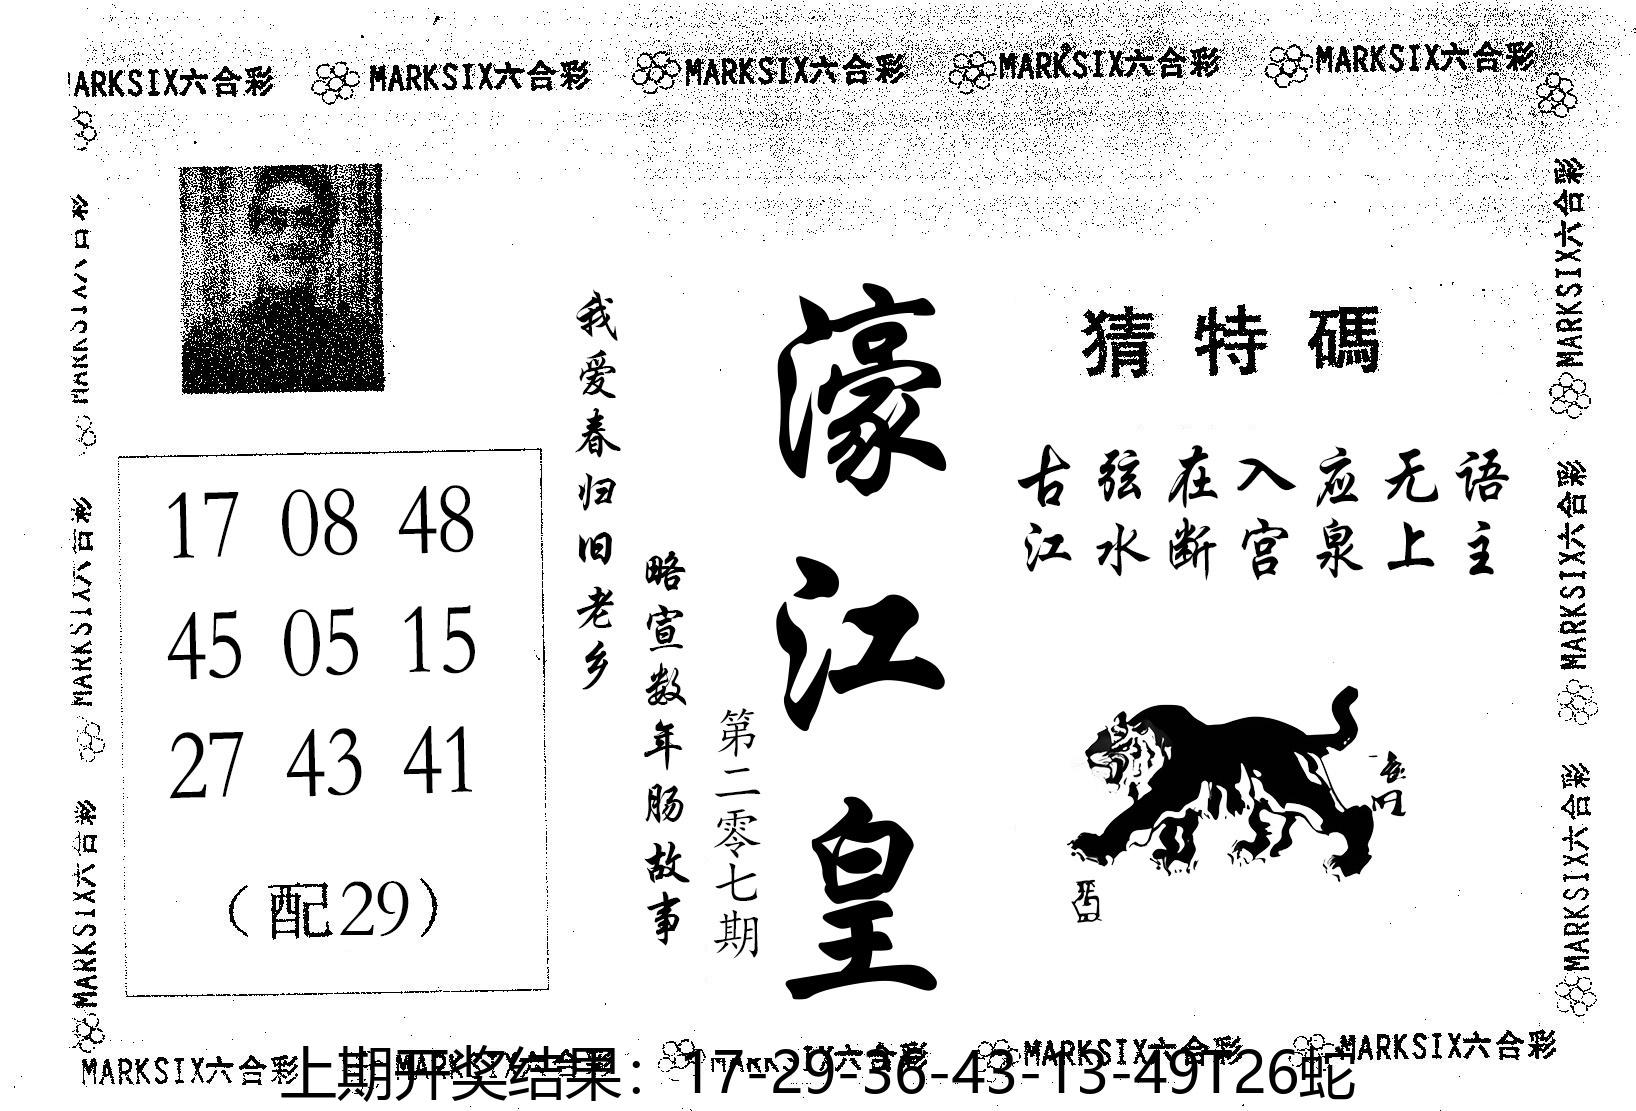 MARKSIX六合彩 MARKSIX六合彩 MARKSIX六合彩 MARKSIX六合彩
MARKSIX六合彩
MARKSIX六合彩
MARKSIX六合彩
MARKSIX六合彩
MARKSIX六合彩
MARKSIX六合彩
17 08 48
45 05 15
27 43 41
（配29）
我爱春归旧老乡
略宣数年肠故事
第二零七期
濠江皇
猜特碼
古弦在入应无语
江水断宫泉上主
MARKSIX六合彩 MARKSIX六合彩 MARKSIX六合彩 MARKSIX六合彩
上期开奖结果：17-29-36-43-13-49T26蛇